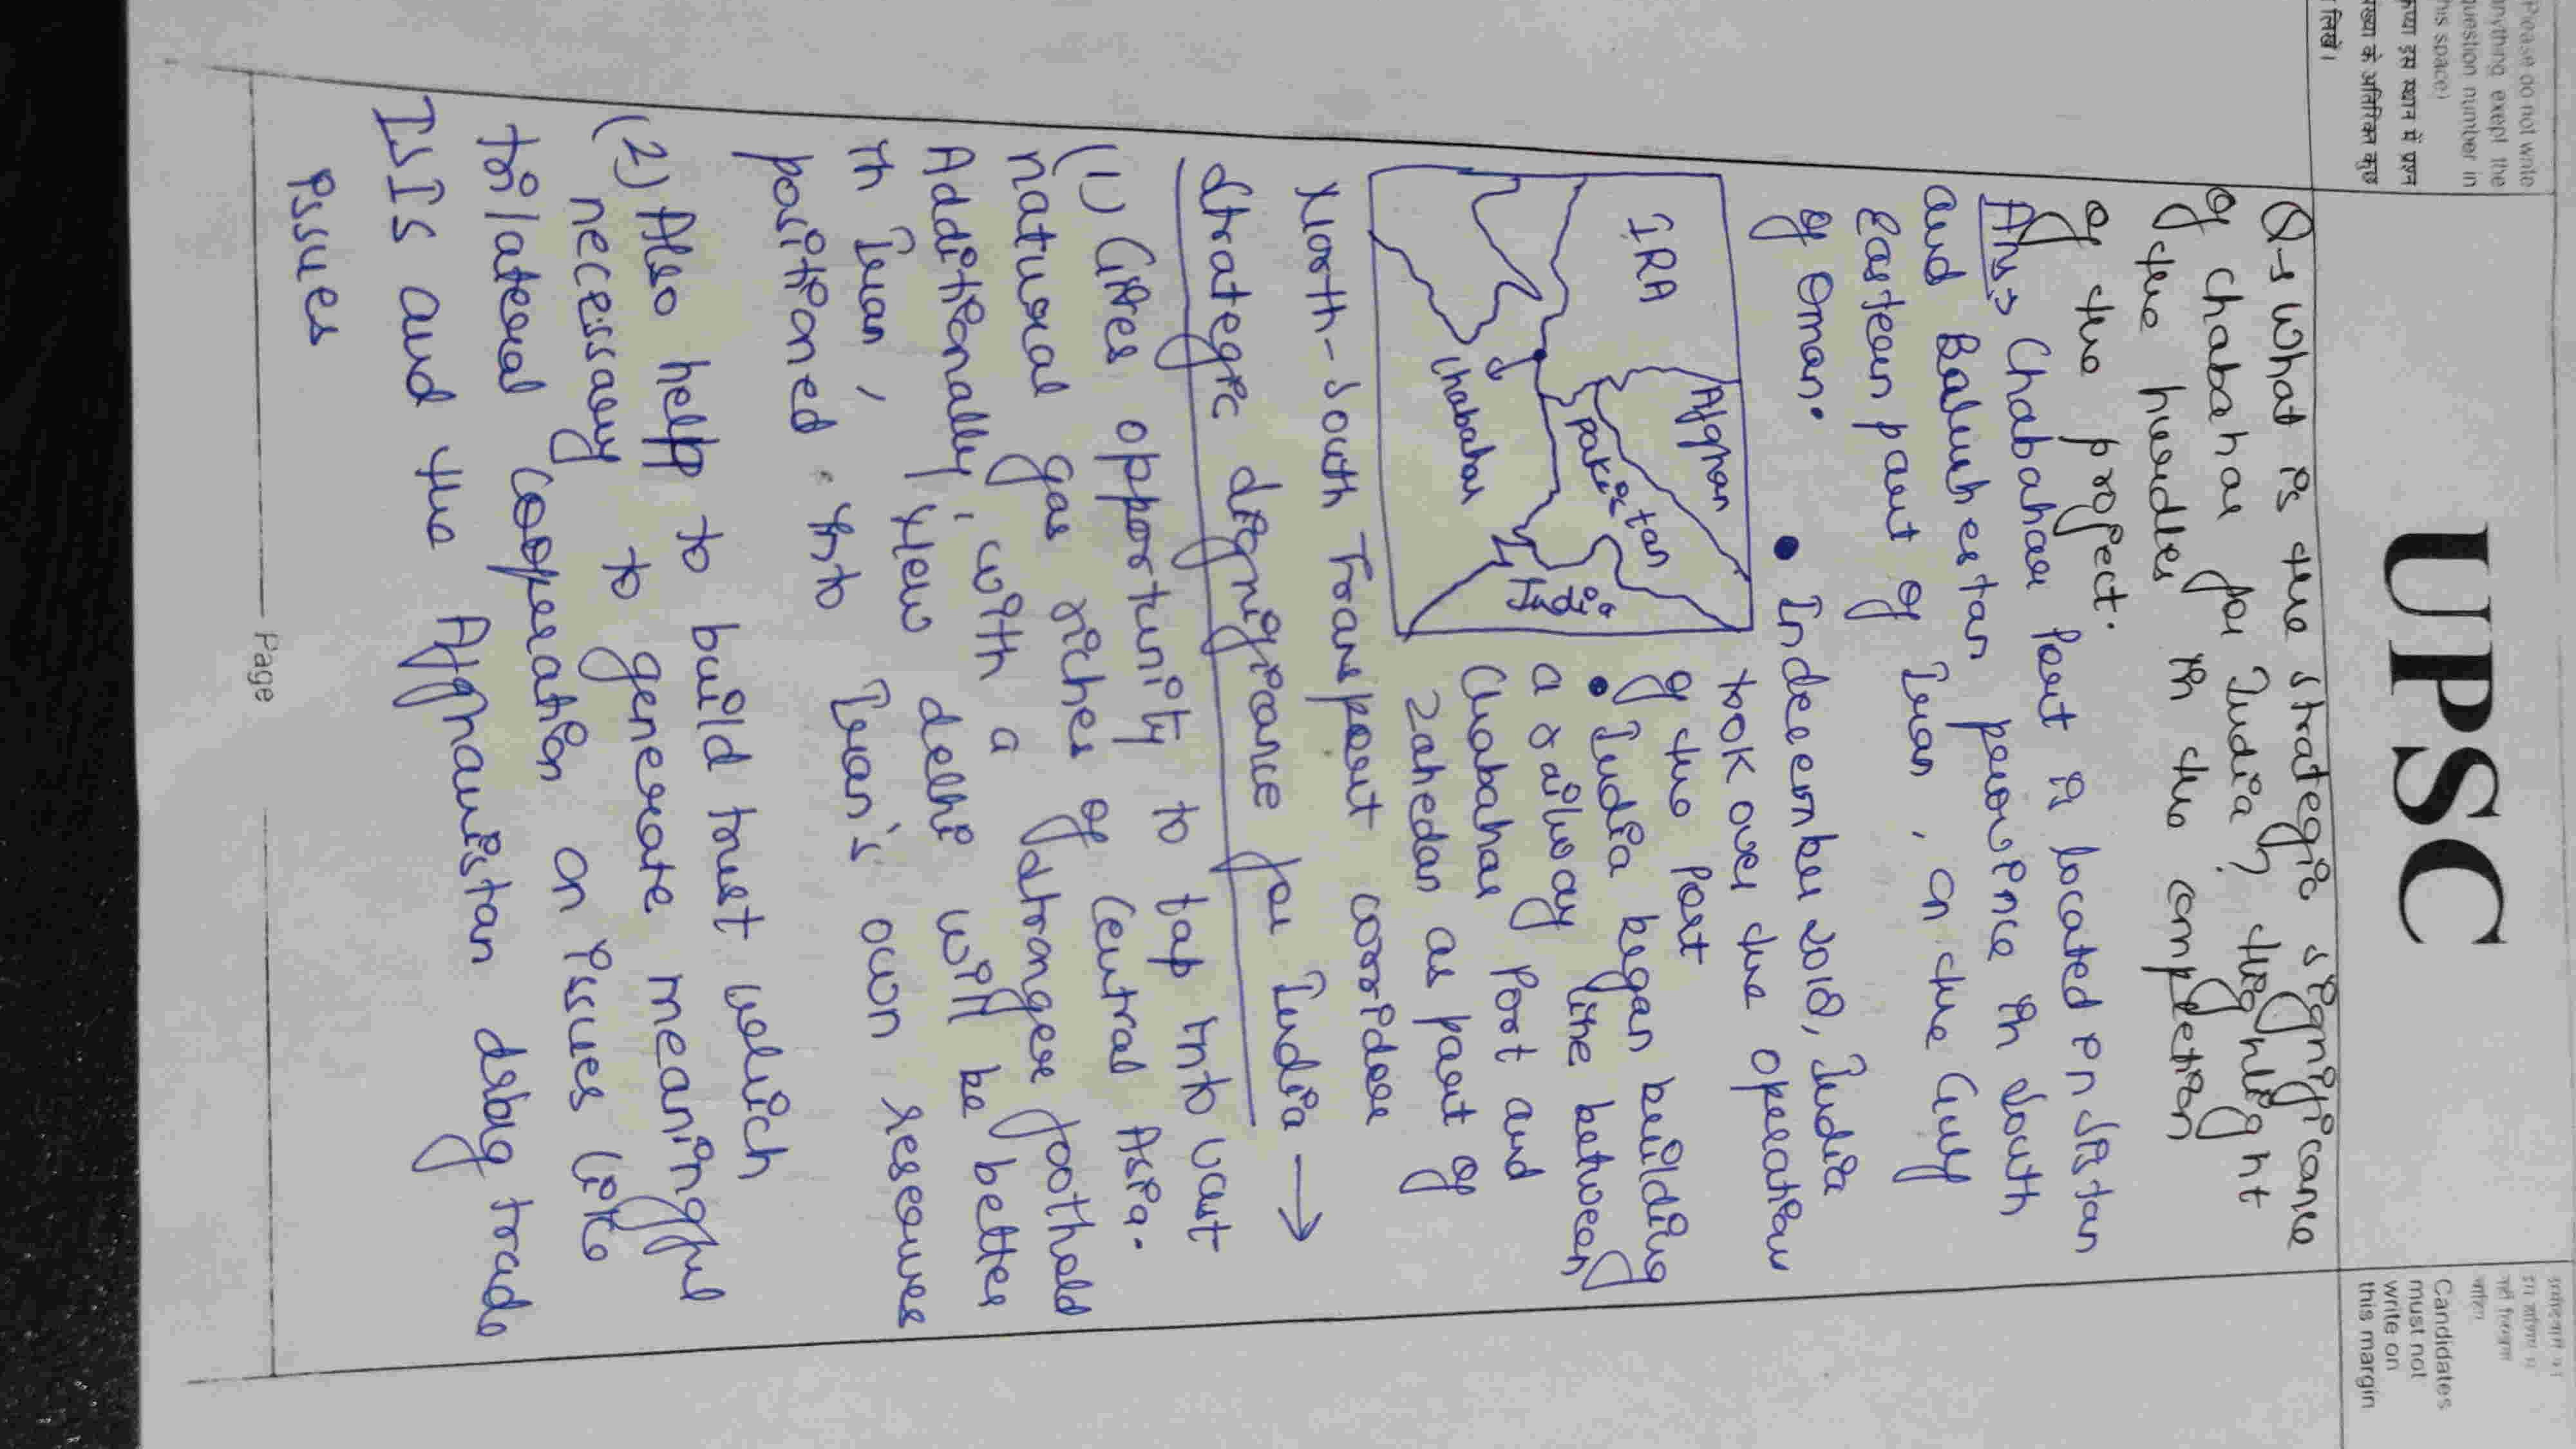 UPSC
Please do not write
anything exept the
question number in
this space)
कृपया इस स्थान में प्रश्न
संख्या के अतिरिक्त कुछ
न लिखें।
Candidates
must not
write on
this margin
Q→ What is the strategic significance
of Chabahar for India? Highlight
of the hurdles in the completion
of the project.
Ans> Chabahar Port is located in Sistan
and Baluchestan province in South
Eastern part of Iran, on the Gulf
of Oman.
• In deecmber 2018, India
took over the operation
of the port
• India began building
a railway line between
Chabahar Port and
Zahedan as part of
North-South Transport corridor
IRA
Afghan
Pakistan
India
Chabahar
Strategic significance for India →
(1) Gives opportunity to tap into vast
natural gas riches of Central Asia.
Additionally, with a stronger foothold
in Iran, New delhi will be better
positioned into Iran's own reserves
(2) Also help to build trust which
necessary to generate meaningful
tri lateral cooperation on issues like
ISIS and the Afghanistan drug trade
issues
Page